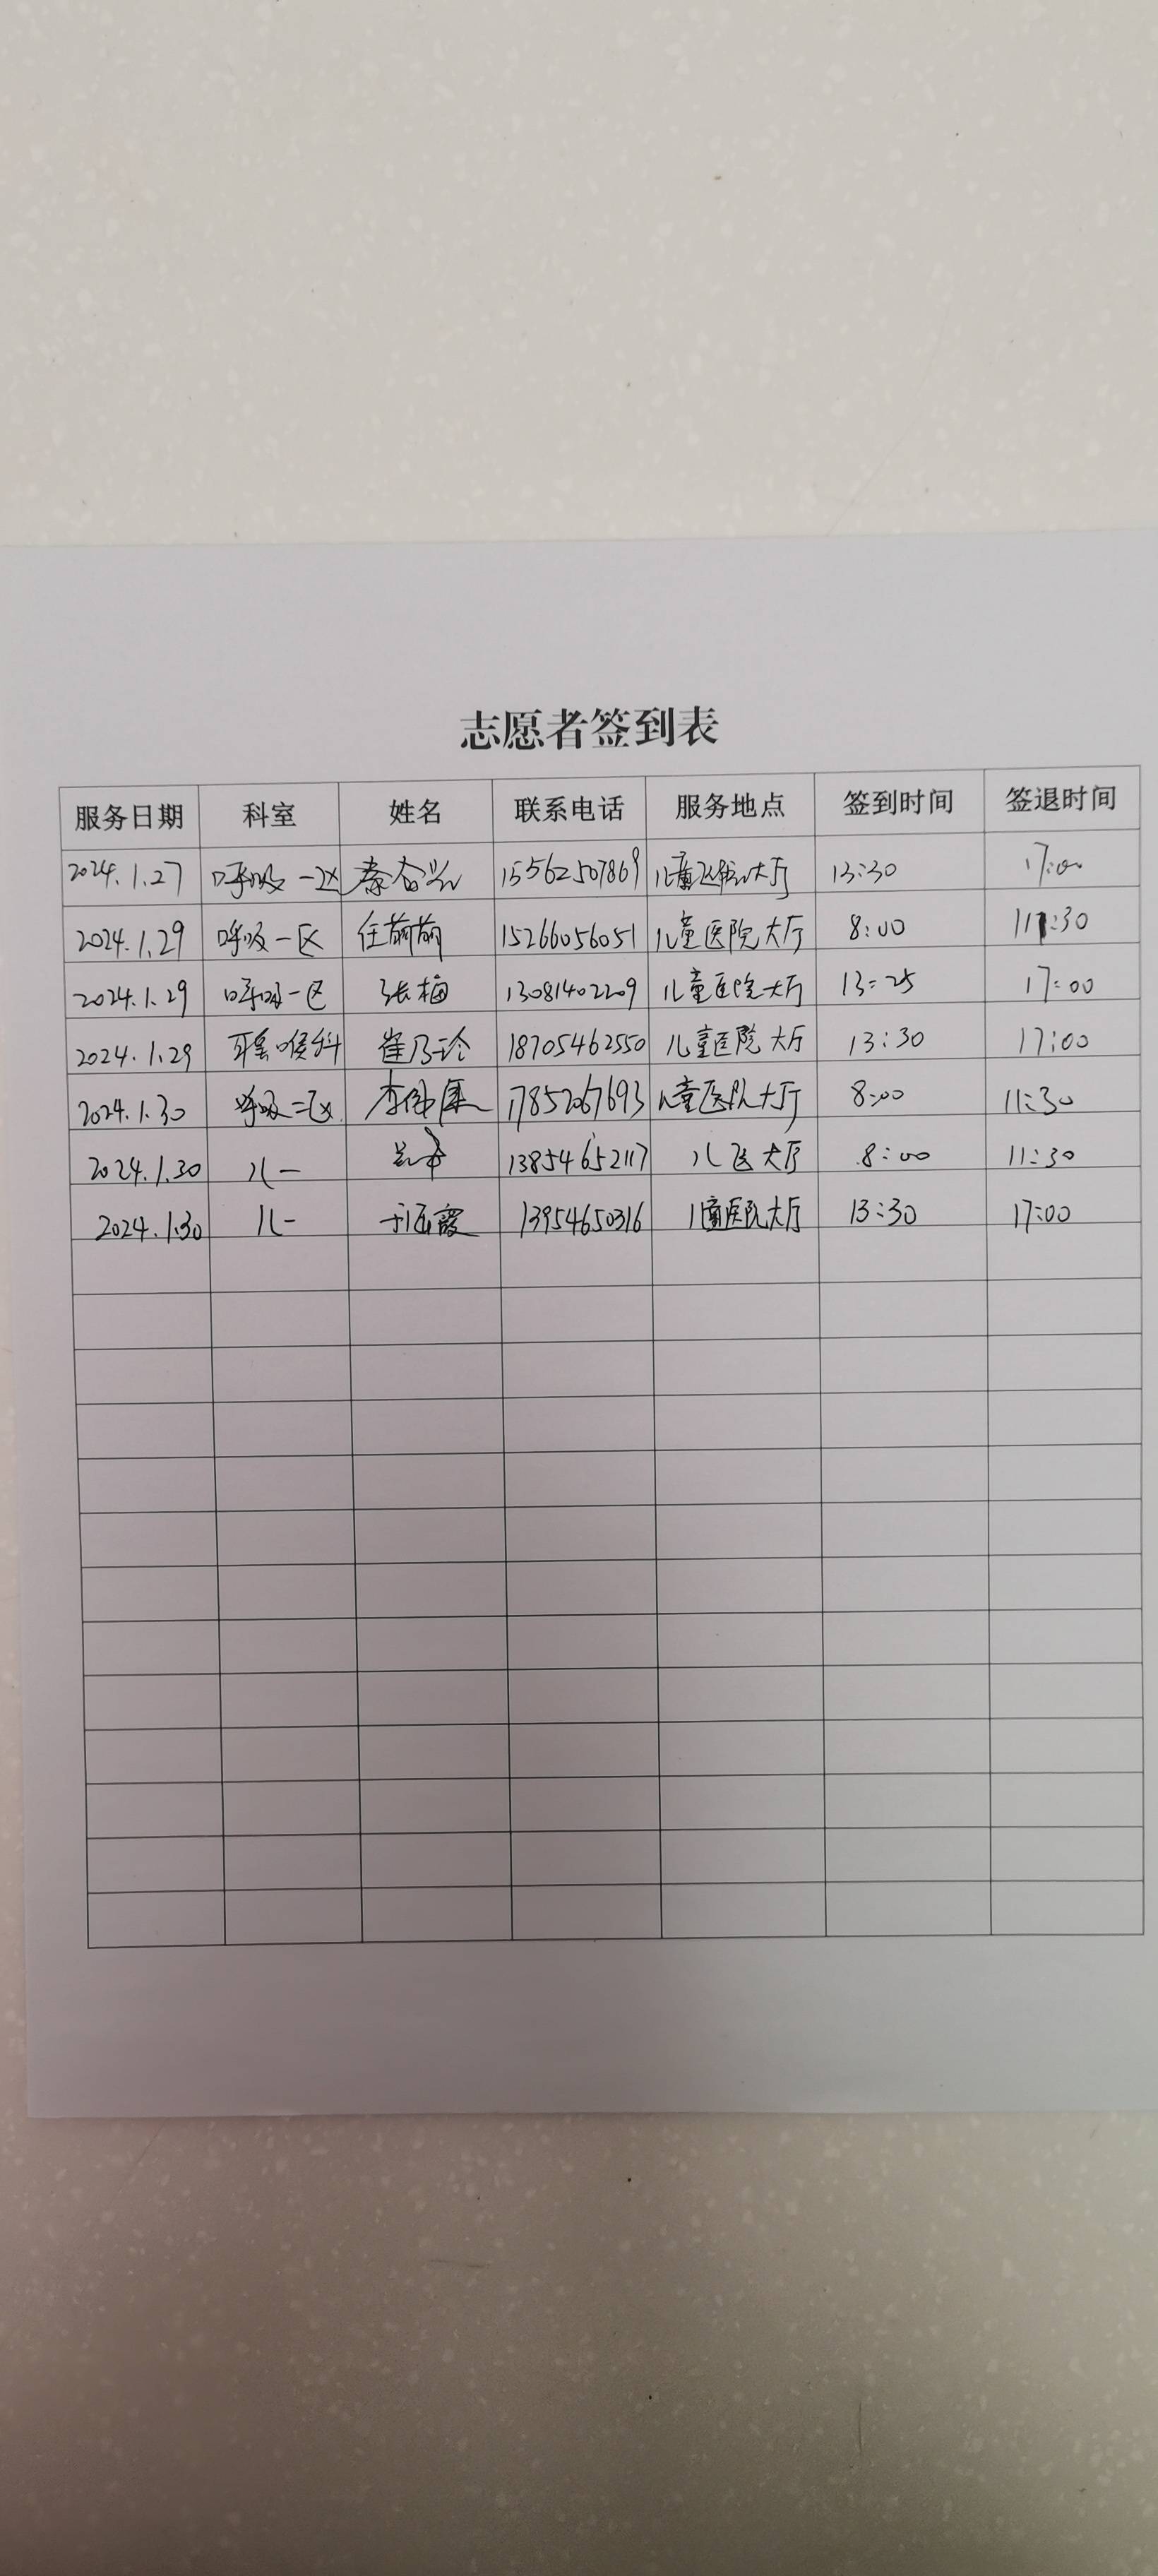 志愿者签到表
服务日期 科室 姓名 联系电话 服务地点 签到时间 签退时间
2024.1.27 呼吸一区 秦奋兴 15562507869 儿童医院大厅 13:30 17:00
2024.1.29 呼吸一区 任萌萌 15266056051 儿童医院大厅 8:00 11:30
2024.1.29 呼吸一区 张梅 13081402209 儿童医院大厅 13:25 17:00
2024.1.29 耳鼻喉科 崔乃玲 18705462550 儿童医院大厅 13:30 17:00
2024.1.30 呼吸二区 李 17852067693 儿童医院大厅 8:00 11:30
2024.1.30 儿一 13854652117 儿医大厅 8:00 11:30
2024.1.30 儿一 霞 13954650316 儿童医院大厅 13:30 17:00